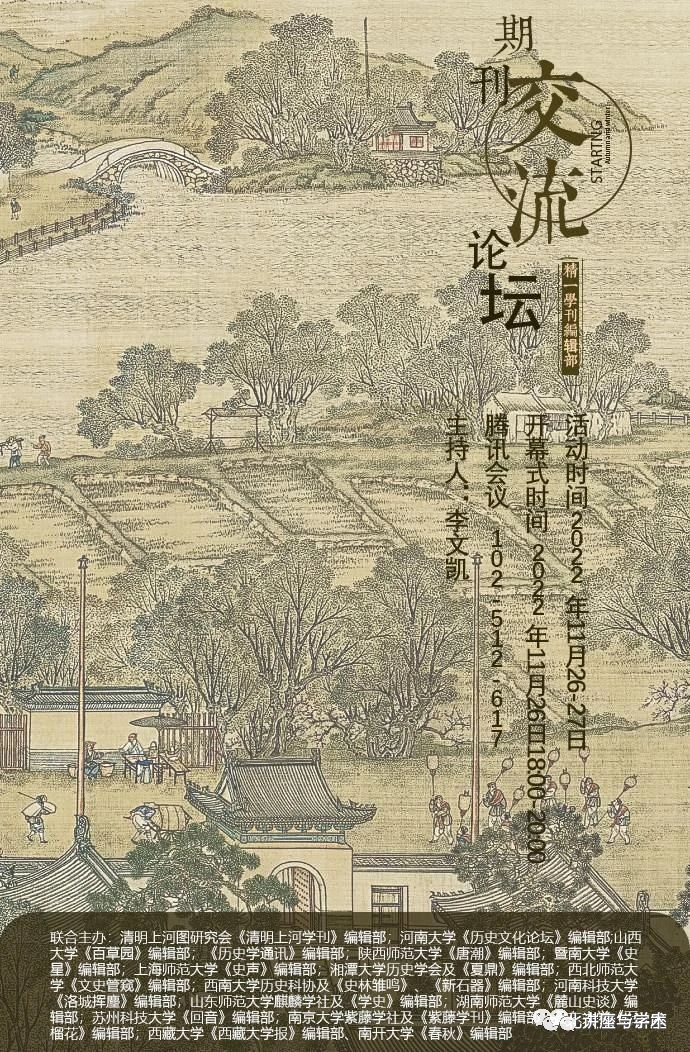 期刊
交流
论坛
STARTING
精一學刊編輯部
活动时间 2022 年11月26-27日
开幕式时间 2022 年11月26日18:00-20:00
腾讯会议 102-512-617
主持人：李文凯
联合主办：清明上河图研究会《清明上河学刊》编辑部；河南大学《历史文化论坛》编辑部;山西
大学《百草园》编辑部；《历史学通讯》编辑部；陕西师范大学《唐潮》编辑部；暨南大学《史
星》编辑部；上海师范大学《史声》编辑部；湘潭大学历史学会及《夏鼎》编辑部；西北师范大
学《文史管窥》编辑部；西南大学历史科协及《史林雏鸣》、《新石器》编辑部；河南科技大学
《洛城挥麈》编辑部；山东师范大学麒麟学社及《学史》编辑部；湖南师范大学《麓山史谈》编
辑部；苏州科技大学《回音》编辑部；南京大学紫藤学社及《紫藤学刊》编辑部
榴花》编辑部；西藏大学《西藏大学报》编辑部、南开大学《春秋》编辑部
讲座与学术